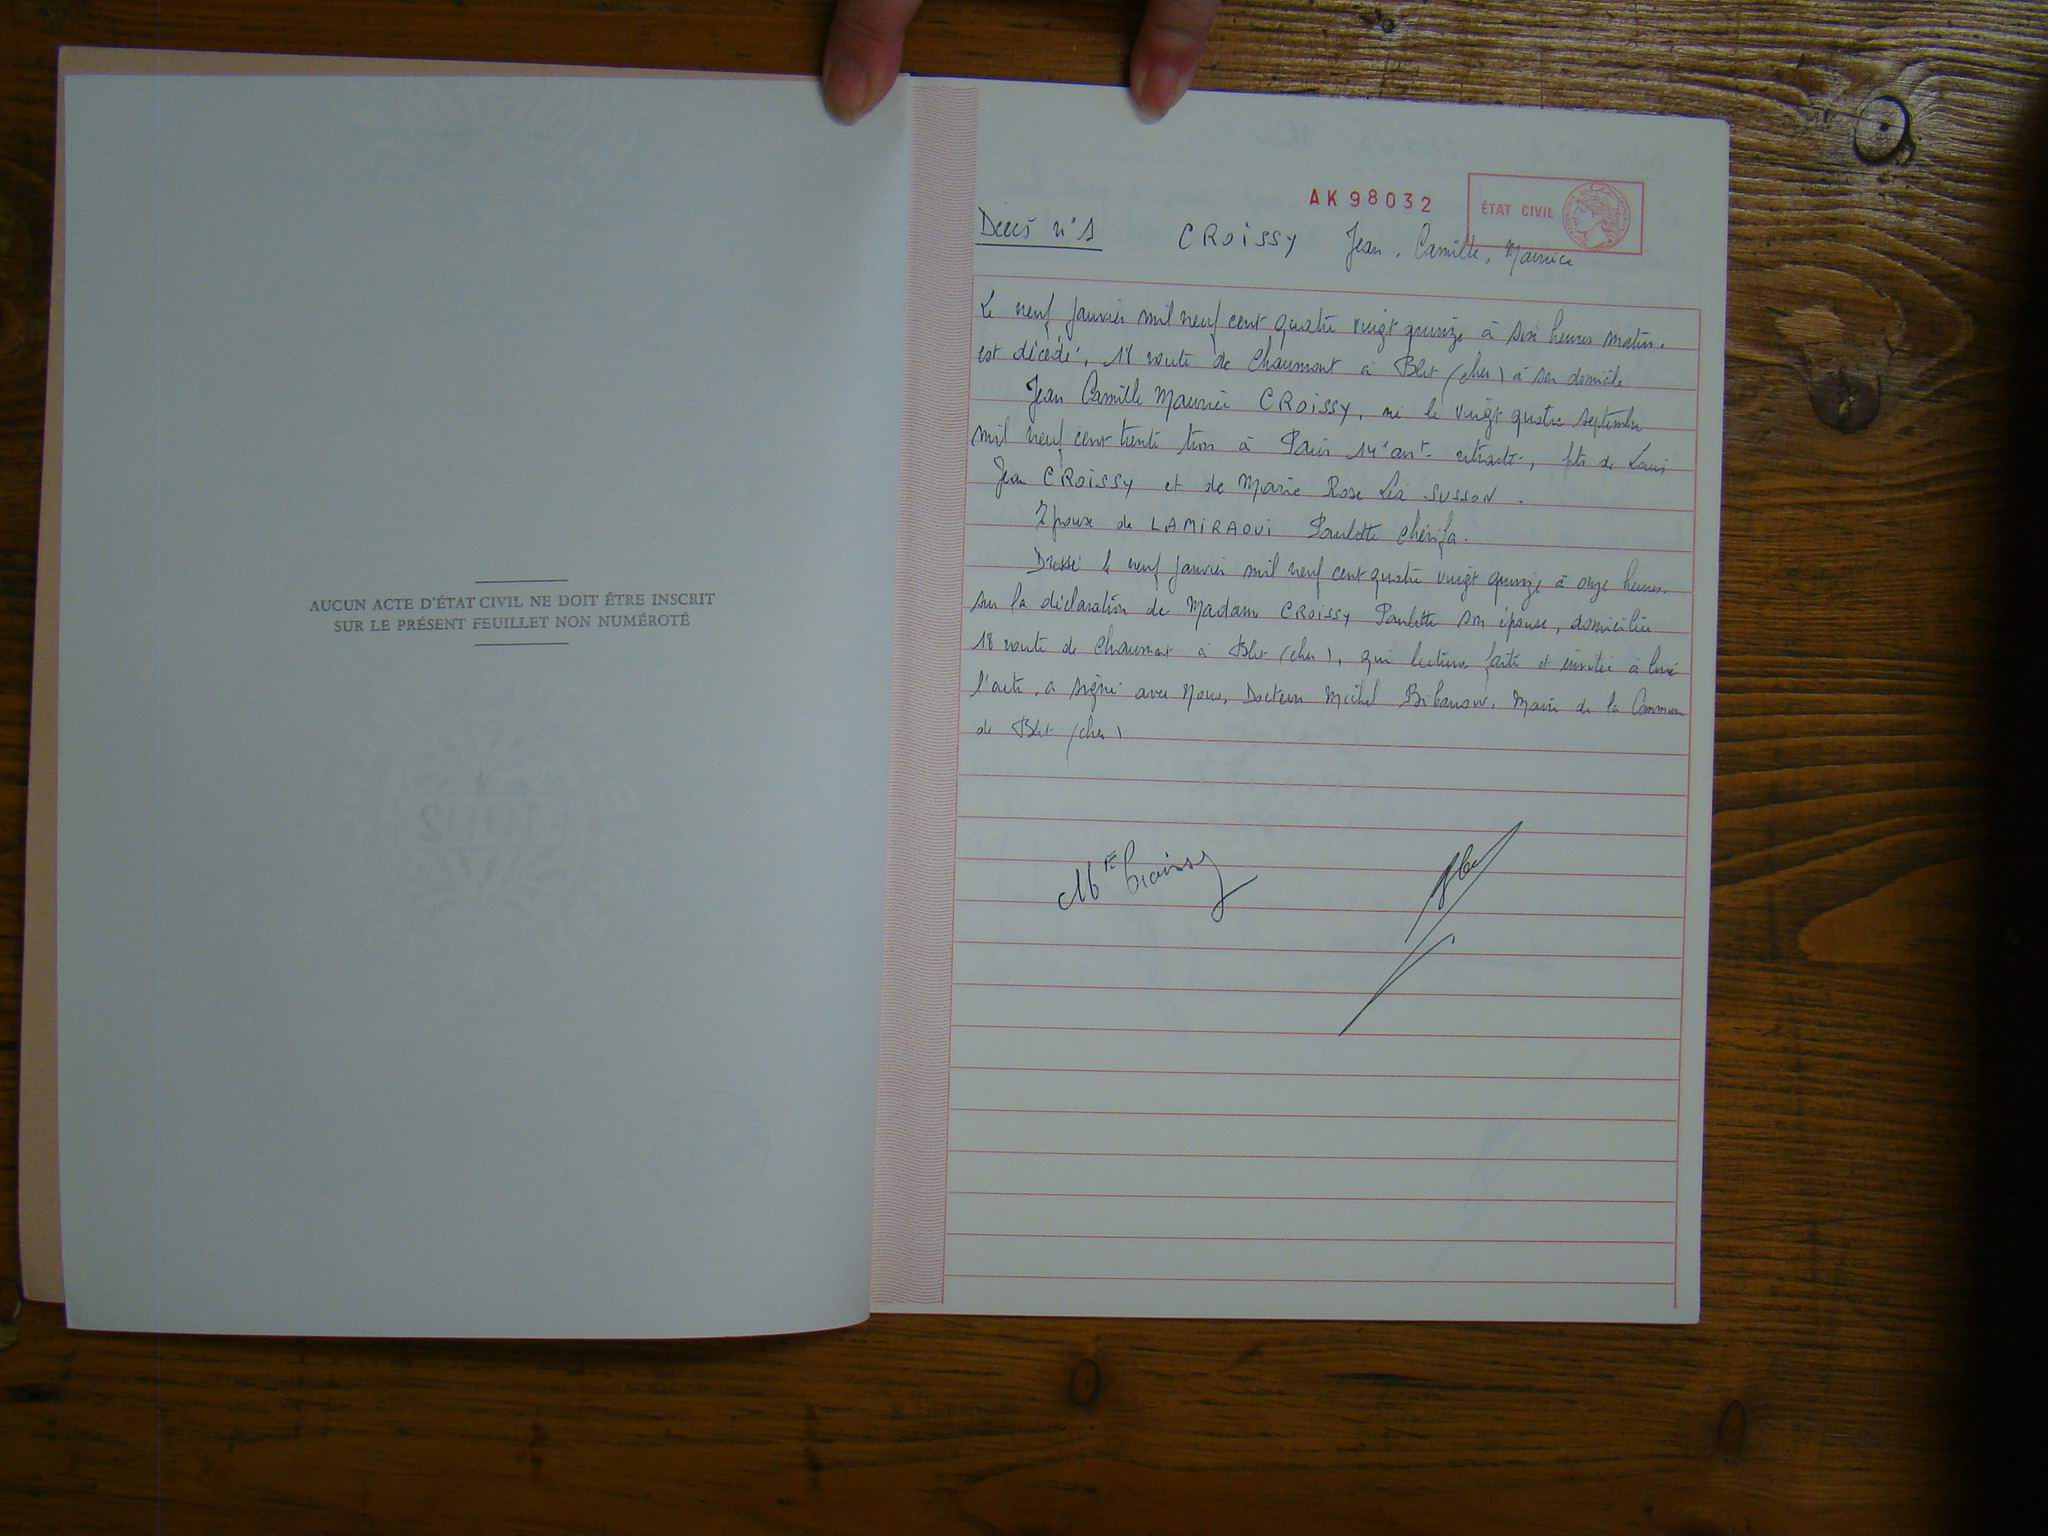 AUCUN ACTE D'ÉTAT CIVIL NE DOIT ÊTRE INSCRIT
SUR LE PRÉSENT FEUILLET NON NUMÉROTÉ
AK 98032
ÉTAT CIVIL
Décès n°1 CROISSY Jean, Camille, Maurice
Le neuf Janvier mil neuf cent quatre vingt quinze à six heures matin.
est décédé, 18 route de Chaumont à Blet (cher) à son domicile
Jean Camille Maurice CROISSY, né le vingt quatre septembre
mil neuf cent trente trois à Paris 14e arrt retraité, fils de Louis
Jean CROISSY et de Marie Rose Léa SUSSON.
Epoux de LAMIRAOUI Paulette Chérifa.
Dressé le neuf Janvier mil neuf cent quatre vingt quinze à onze heures.
sur la déclaration de Madame CROISSY Paulette son épouse, domiciliée
18 route de Chaumont à Blet (cher), qui lecture faite et invitée à lire
l'acte, a signé avec Nous, Docteur Michel Maire de la Commune
de Blet (cher)
Mme Croissy
1992